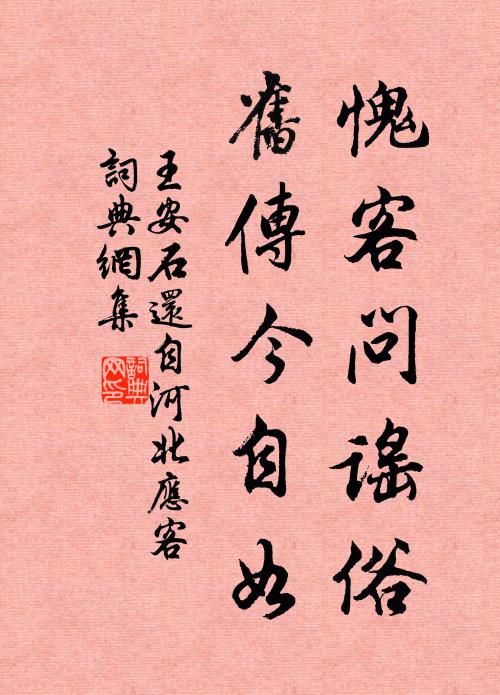 愧客問謠俗
舊傳今自如
王安石還自河北應客
詞典網集
詞典網印